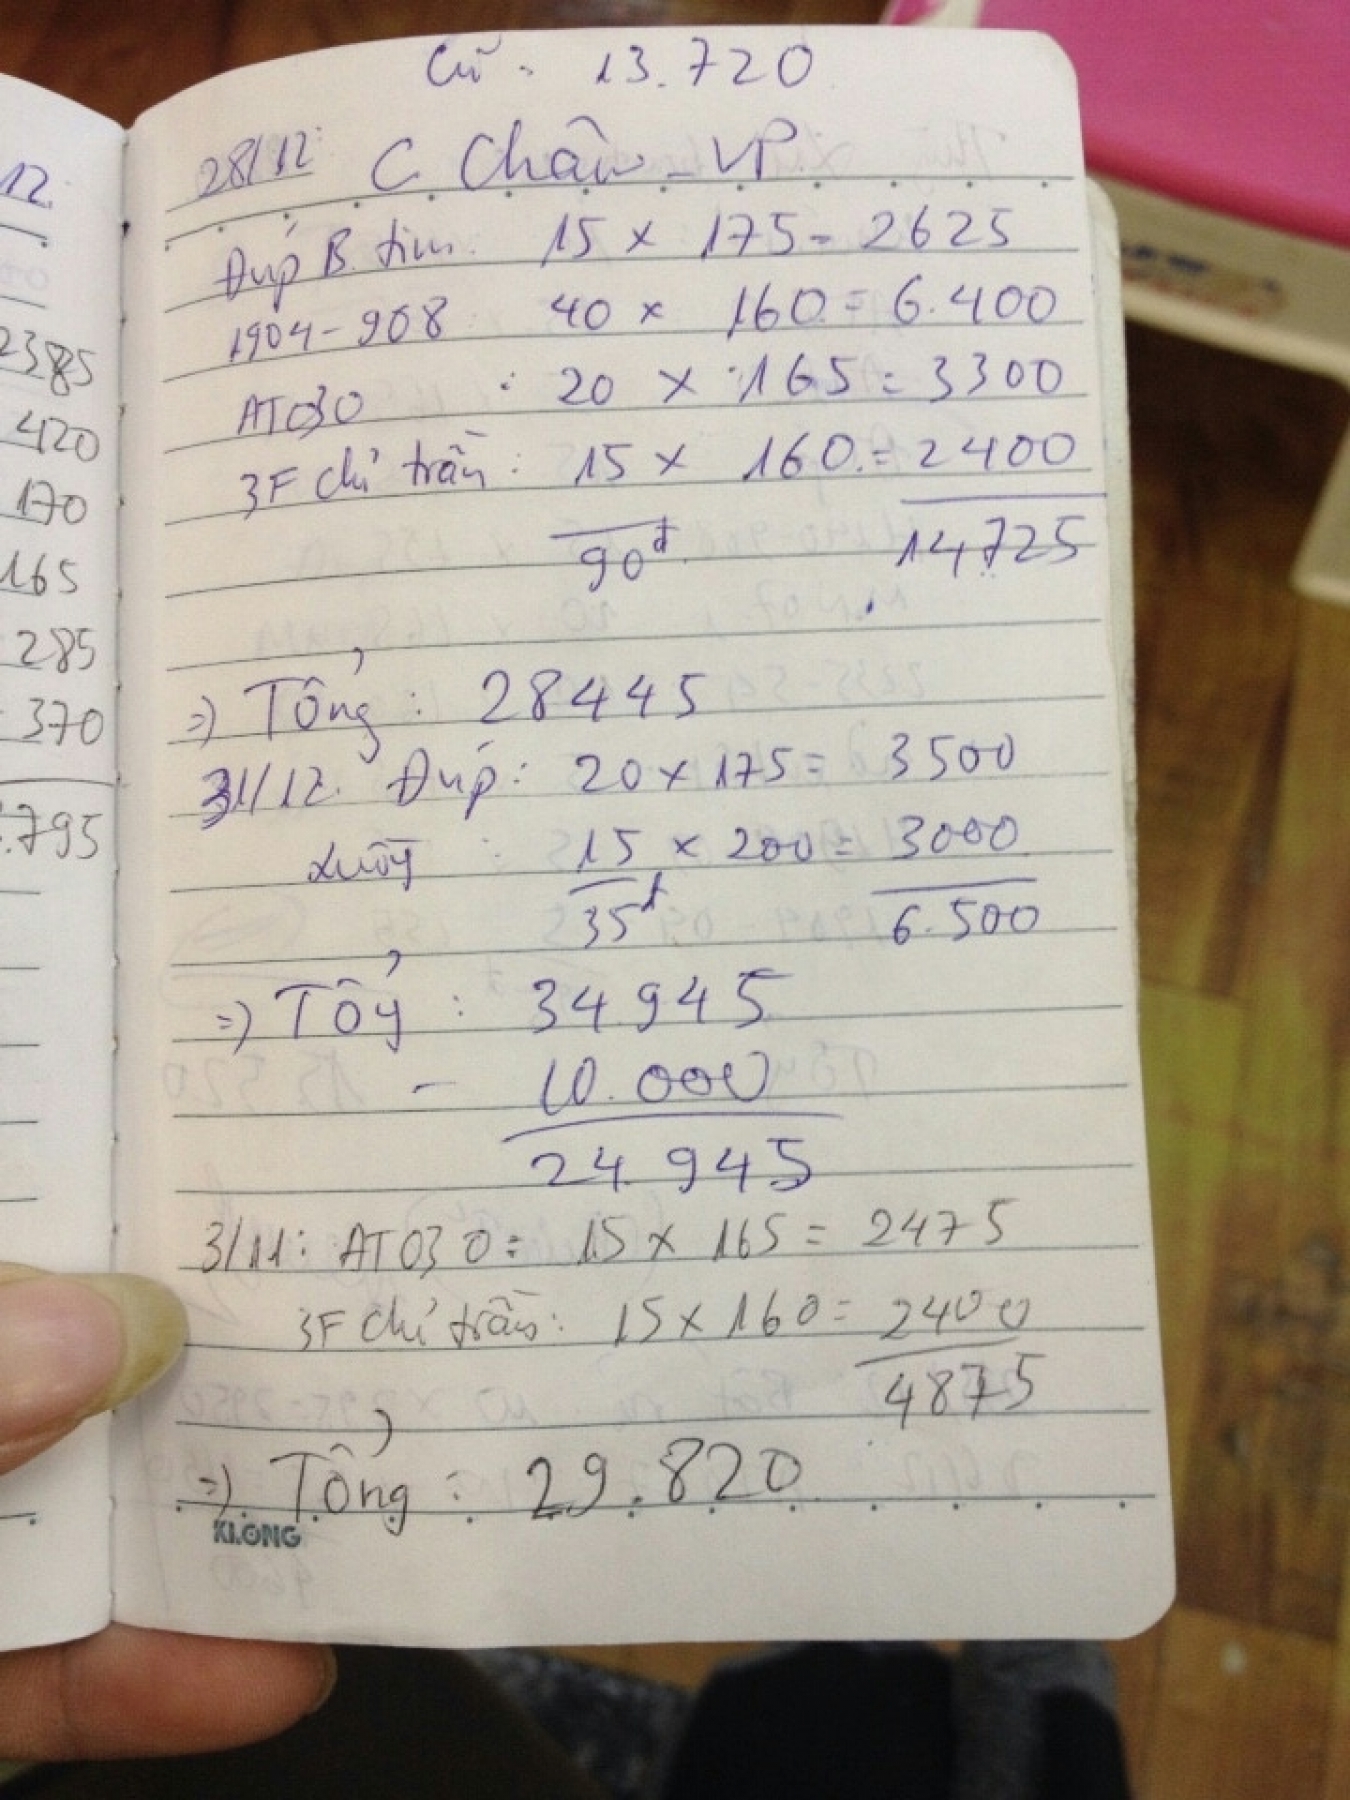 12.
2385
420
170
165
285
370
.795
Cũ - 13.720
28/12: C Châu - VP
Đúp B. tim: 15 x 175 = 2625
1904 - 908 40 x 160 = 6.400
AT030 : 20 x 165 = 3300
3F chỉ trần : 15 x 160 = 2400
90đ 14725
=) Tổng : 28445
31/12. Đúp : 20 x 175 = 3500
: 15 x 200 = 3000
35đ 6.500
=) Tổng : 34.945
- 10.000
24.945
3/11: AT030 = 15 x 165 = 2475
3F chỉ trần : 15 x 160 = 2400
4875
=) Tổng : 29.820
KLONG